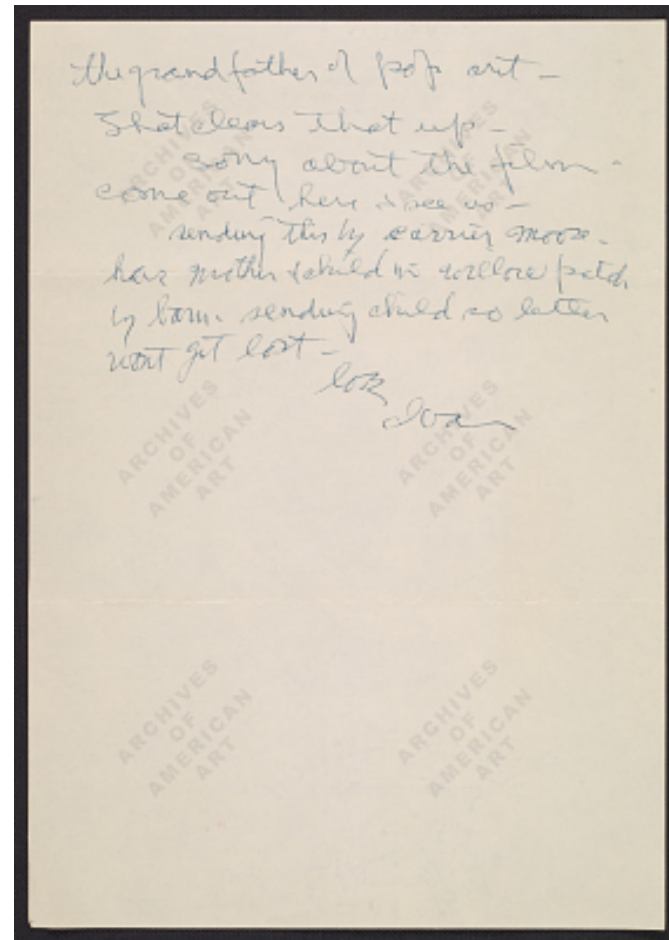 the grandfather of pop art –
That clears that up –
sorry about the film –
come out here & see us –
sending this by carrier moose.
have mother & child in willow patch
by barn. sending child so letter
wont get lost –
love
Ivan
ARCHIVES
OF
AMERICAN
ART
ARCHIVES
OF
AMERICAN
ART
ARCHIVES
OF
AMERICAN
ART
ARCHIVES
OF
AMERICAN
ART
ARCHIVES
OF
AMERICAN
ART
ARCHIVES
OF
AMERICAN
ART